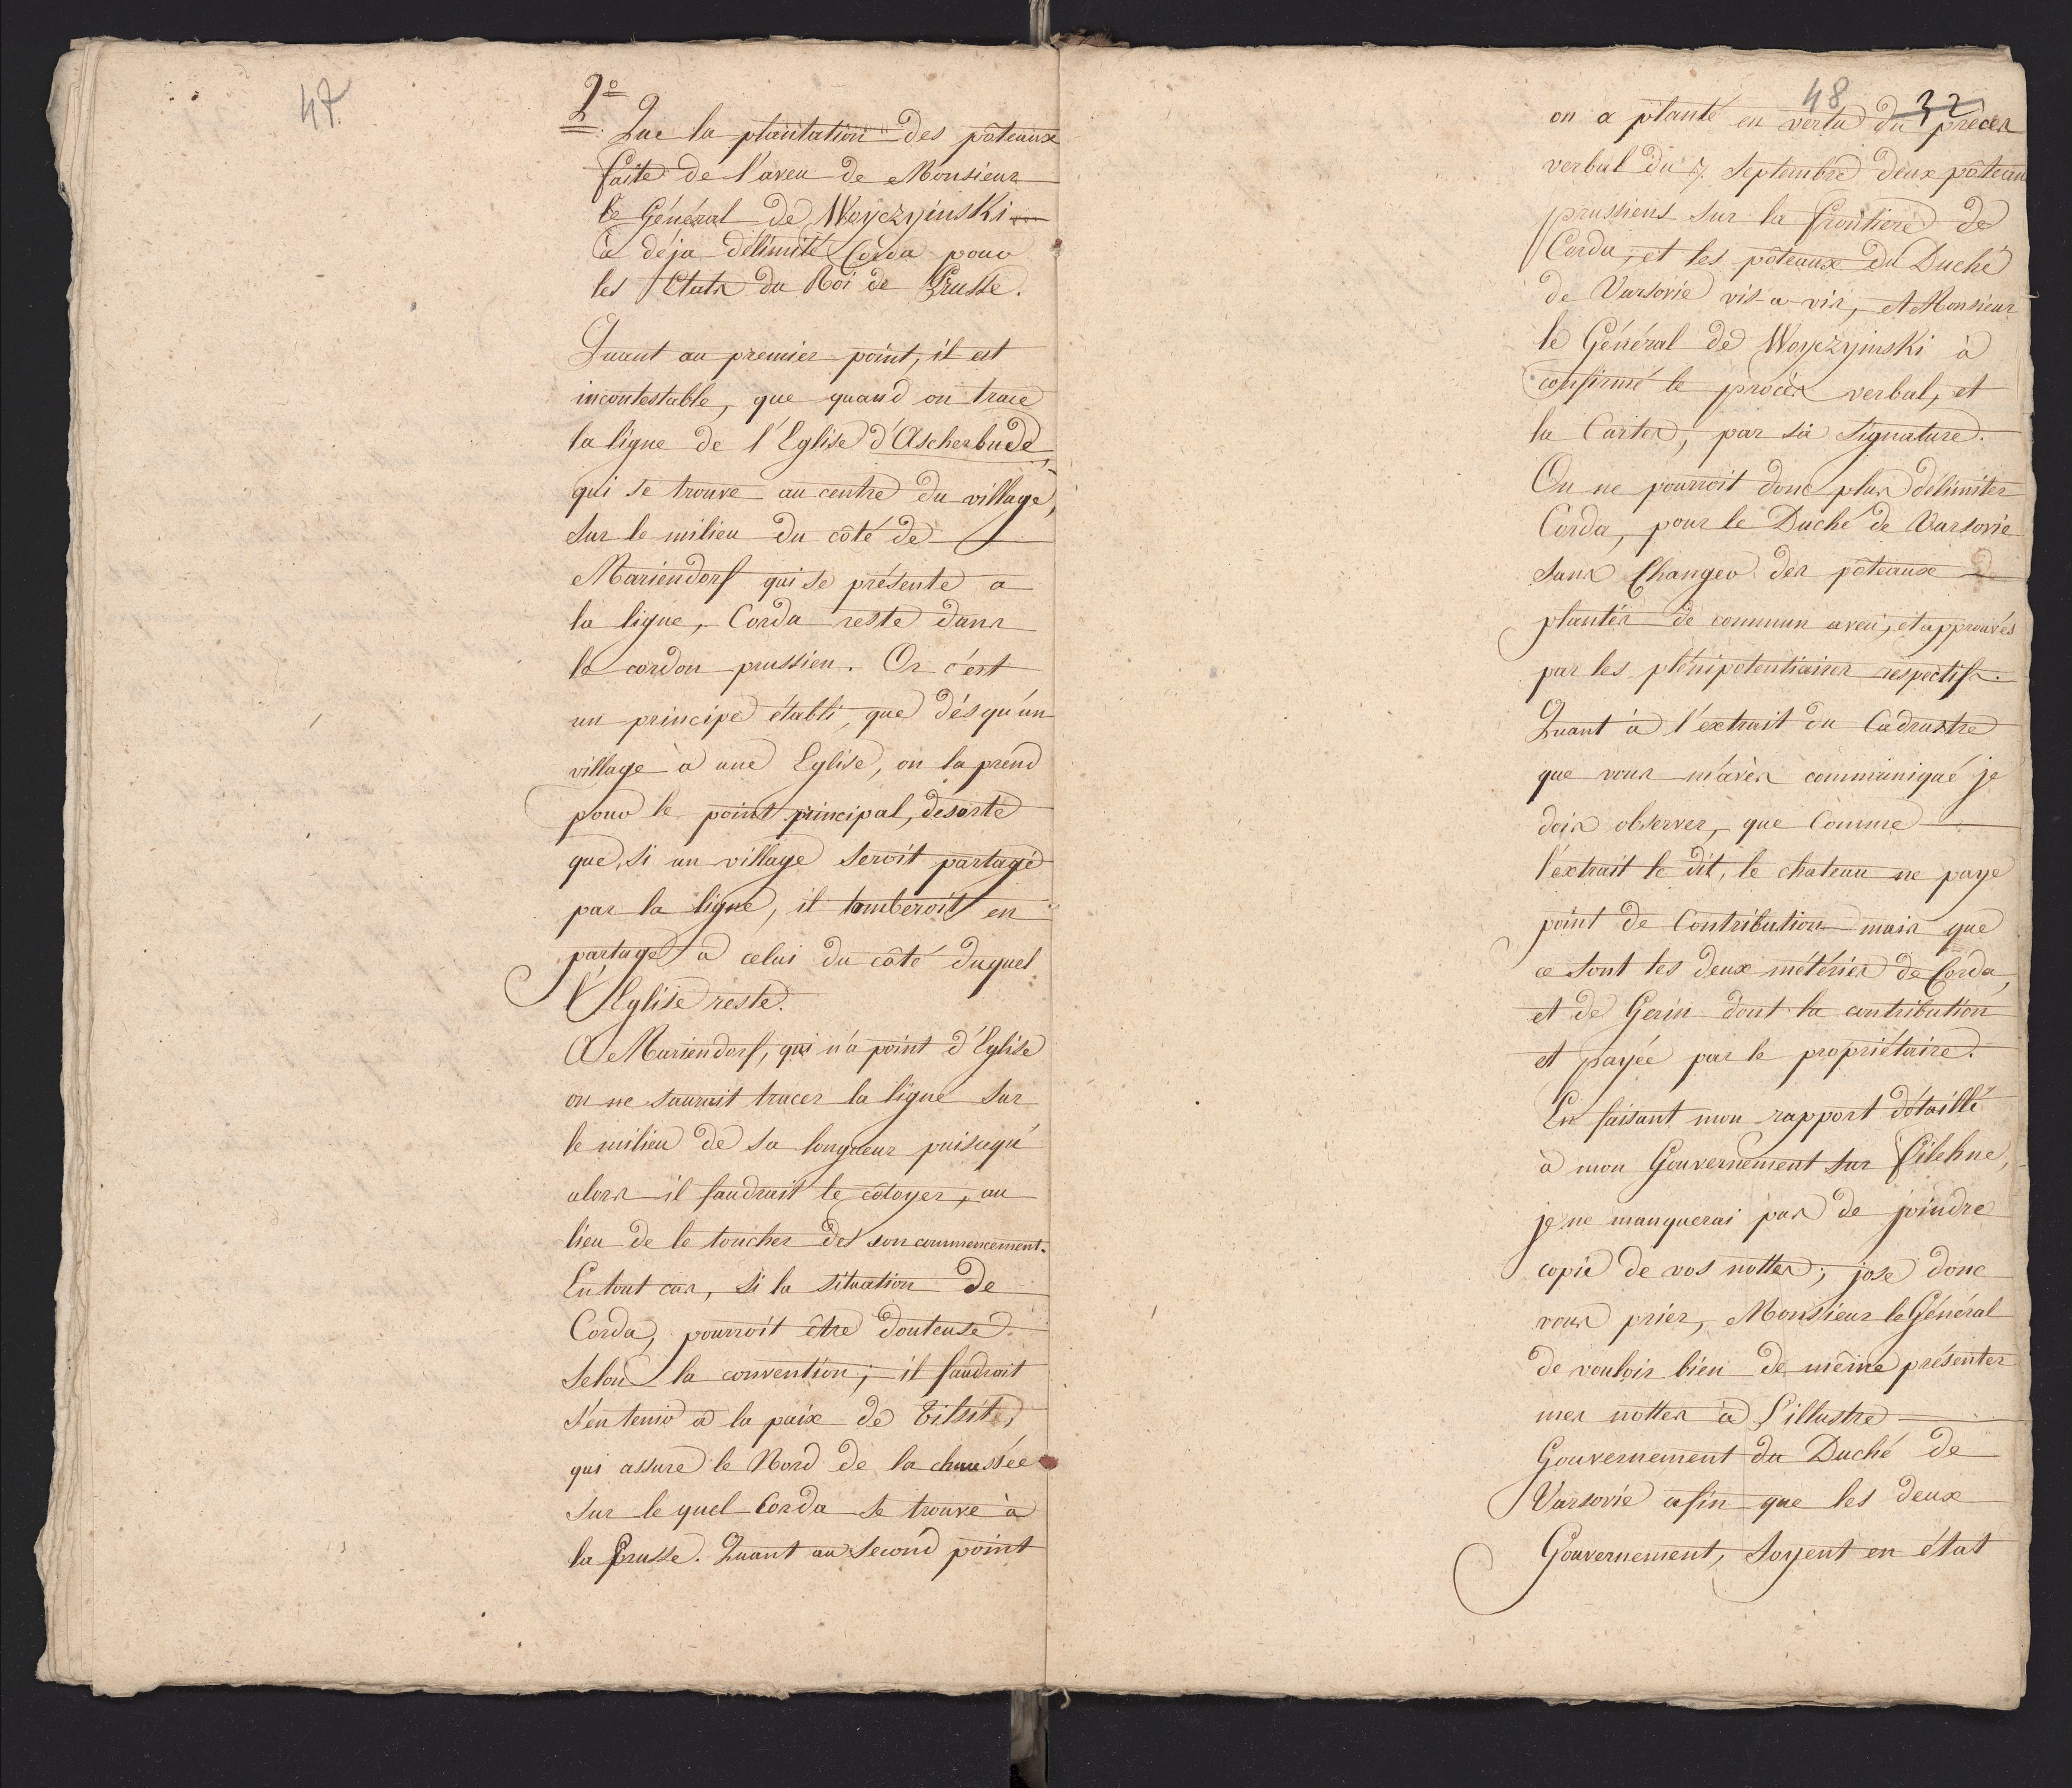 47.
2º
Que la plantation des pôteaux
faite de l'aveu de Monsieur
le Général de Woyczyinski
a déja délimité Corda pour
les Etats du Roi de Prusse.
Quant au premier point, il est
incontestable, que quand on trace
la ligne de l'Eglise d'Ascherbude,
qui se trouve au centre du village,
sur le milieu du côté de
Mariendorf qui se présente a
la ligne, Corda reste dans
le cordon prussien. Or c'est
un principe établi, que dés qu'un
village à une Eglise, on la prend
pour le point principal, desorte
que, si un village seroit partagé
par la ligne, il tomberoit en
partage a celui du côté duquel
l'Eglise reste.
A Mariendorf, qui n'a point d'Eglise
on ne saurait tracer la ligne sur
le milieu de sa longueur puisequ'
alors il faudrait le côtoyer, au
lieu de le toucher des son commencement.
En tout cas, si la situation de
Corda, pourroit être douteuse
selon la convention; il faudroit
s'en tenir à la paix de Tilsit,
qui assure le Nord de la chaussée
sur le quel Corda se trouve à
la Prusse. Quant au second point
48
32
on a planté en vertu du procès
verbal du 7. Septembre deux pôteau
prussiens sur la frontiere de
Corda, et les pôteaux du Duché
de Varsovie vis-a-vis, et Monsieur
le Général de Woyczyinski à
confirmé le procès verbal, et
la Carte, par sa signature.
On ne pourroit donc plus délimiter
Corda, pour le Duché de Varsovie
sans Changer des pôteaux
plantés de commun aveu, et approuvés
par les plénipotentiaires respectifs.
Quant à l'extrait du Cadrastre
que vous m'avès communiqué je
dois observer, que Comme
l'extrait le dit, le chateau ne paye
point de Contribution mais que
ce sont les deux météries de Corda,
et de Gerin dont la contribution
est payée par le propriétaire.
En faisant mon rapport détaillé
à mon Gouvernement sur Filehne,
je ne manquerai pas de joindre
copie de vos nottes; jose donc
vous prier, Monsieur le Général
de vouloir bien de même présenter
mes nottes à l'illustre
Gouvernement du Duché de
Varsovie afin que les deux
Gouvernement, soyent en état